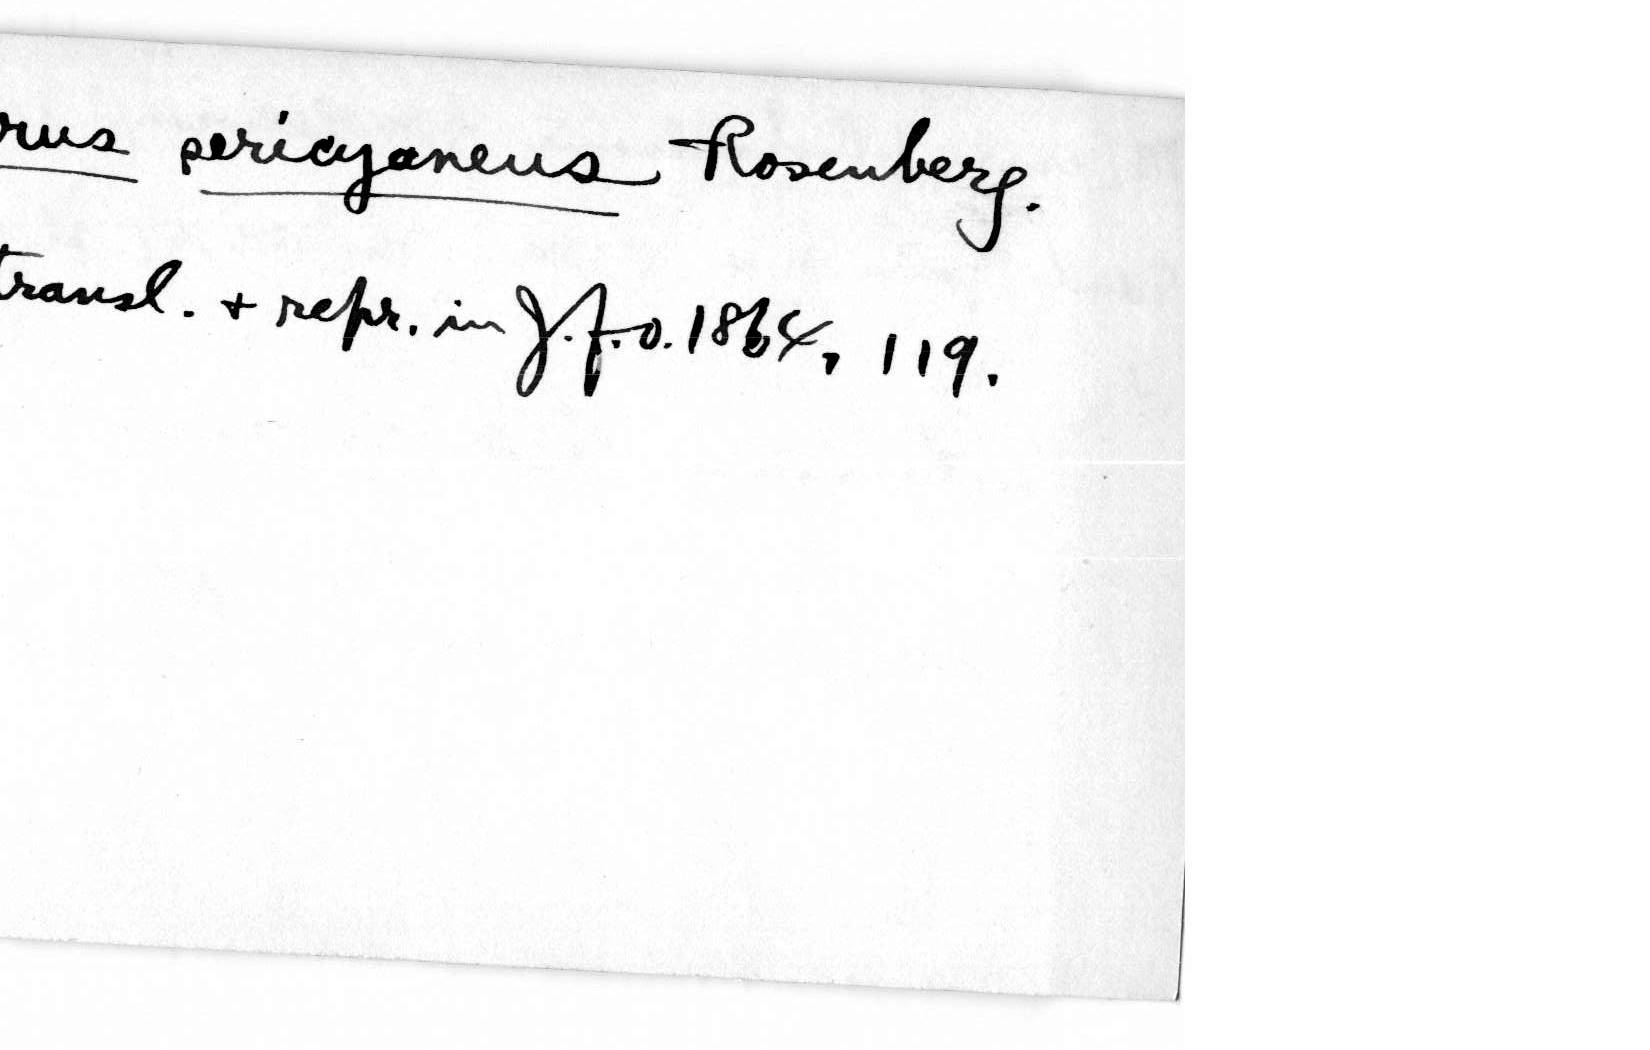 rus pericyaneus Rosenberg.
transl. + repr. in J.f.O. 1864, 119.